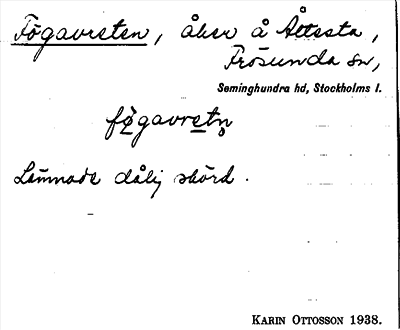 Fögavreten, åker å Åttesta,
Frösunda sn,
Seminghundra hd, Stockholms l.
fø̱gavre̱tn̥
Lämnade dålig skörd.
KARIN OTTOSSON 1938.